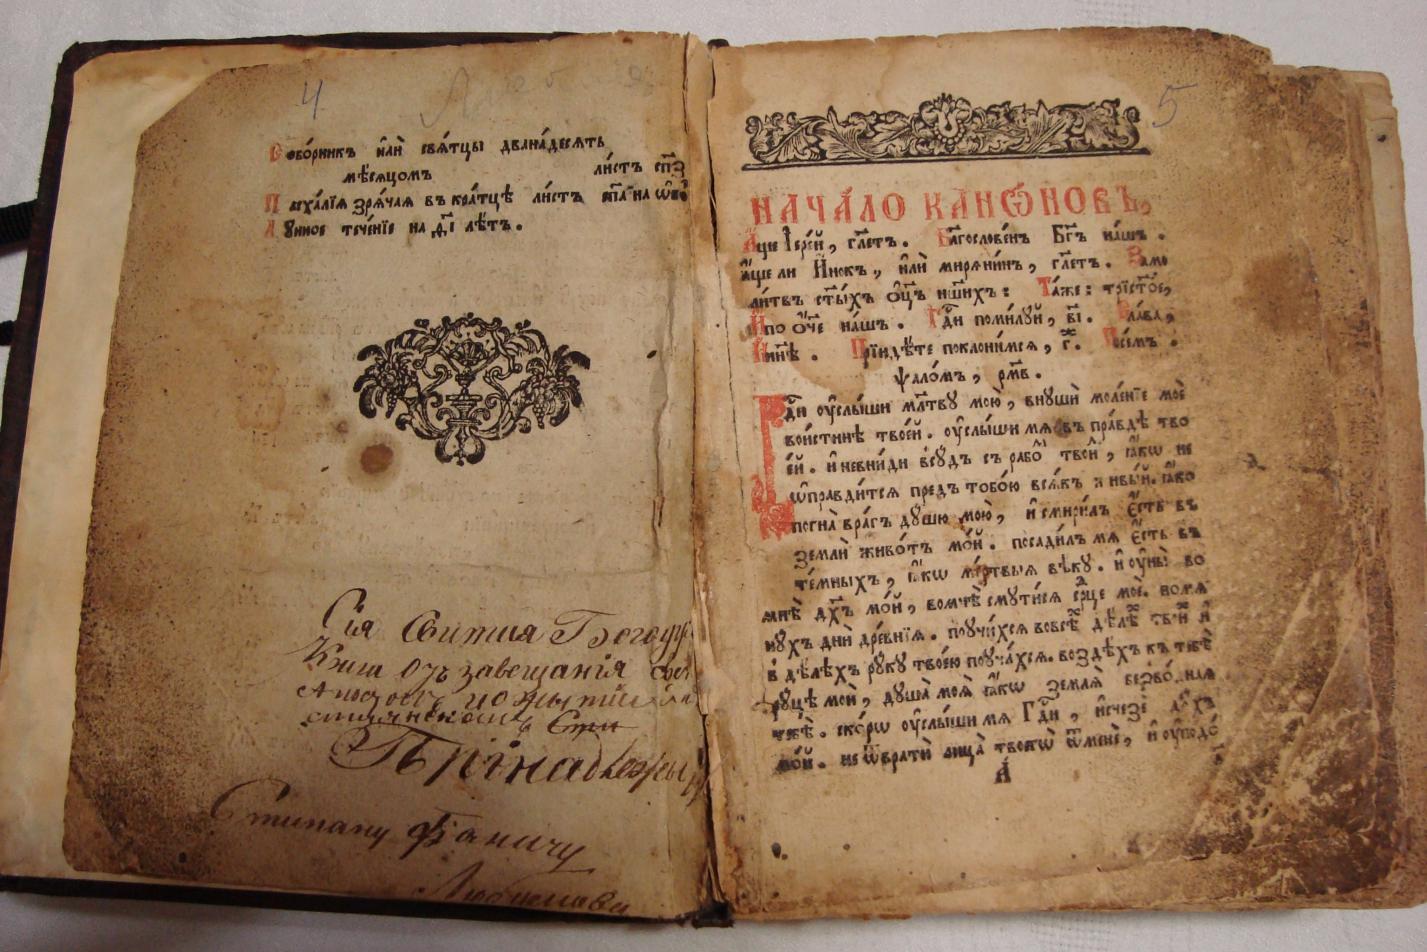 4
Собо́рникъ и҆лѝ свѧ́тцы двана́десѧть
мѣ́сѧцомъ ли́стъ сп҃з
Пасха́лїѧ зрѧ́чаѧ въ кра́тцѣ ли́стъ
Лу́нное тече́нїе на д҃і лѣ́тъ.
Сія
Книга отъ завещанія
Прінадлежы
Стипану
5
НАЧА́ЛО КАНѠ́НОВЪ,
А҆́ще І҆ере́й, гл҃етъ. Бл҃гослове́нъ Бг҃ъ на́шъ.
а҆́ще ли И҆́нокъ, и҆лѝ мирѧни́нъ, гл҃етъ. За мо
ли́твъ ст҃ы́хъ ѻ҆ц҃ъ на́шихъ: Та́же: трист҃о́е,
И҆ по ѻ҆́ч҃е на́шъ. Гд҃и поми́луй, в҃і. Сла́ва,
И҆ ны́нѣ. Прїиди́те поклони́мсѧ, г҃. Посе́мъ.
ѱало́мъ, рм҃в.
Гд҃и ᲂу҆слы́ши мл҃тву мою̀, внушѝ моле́нїе моѐ
во и҆́стинѣ твое́й. ᲂу҆слы́ши мѧ въ пра́вдѣ тво
е́й. и҆ не вни́ди в̾ су́дъ съ рабо́мъ твои́мъ, ꙗ҆́кѡ не
ѡ҆правди́тсѧ предъ тобо́ю всѧ́къ живы́й. ꙗ҆́кѡ
погна̀ вра́гъ ду́шю мою̀, и҆ смири́лъ є҆́сть въ
землѝ живо́тъ мо́й. посади́лъ мѧ є҆́сть въ
те́мныхъ, ꙗ҆́кѡ ме́ртвыѧ вѣ́ку. и҆ ᲂу҆ны̀ во
мнѣ̀ дх҃ъ мо́й, во мнѣ̀ смути́сѧ ср҃це моѐ. помѧ
ну́хъ дни̑ дре́внїѧ. поучи́хсѧ во всѣ́хъ дѣ́лѣхъ твои́хъ и҆
в̾ дѣ́лѣхъ руку̀ твоє́ю поуча́хсѧ. воздѣ́хъ къ тебѣ̀
ру́цѣ мои̑, душа̀ моѧ̀ ꙗ҆́кѡ землѧ̀ безво́днаѧ
тебѣ̀. ско́рѡ ᲂу҆слы́ши мѧ Гд҃и, и҆счезѐ дх҃ъ
мо́й. не ѿвратѝ лица̀ твоегѡ̀ ѿ менѐ, и҆ ᲂу҆подо́
а҃